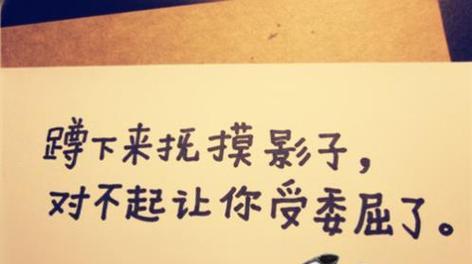 蹲下来抚摸影子，
对不起让你受委屈了。